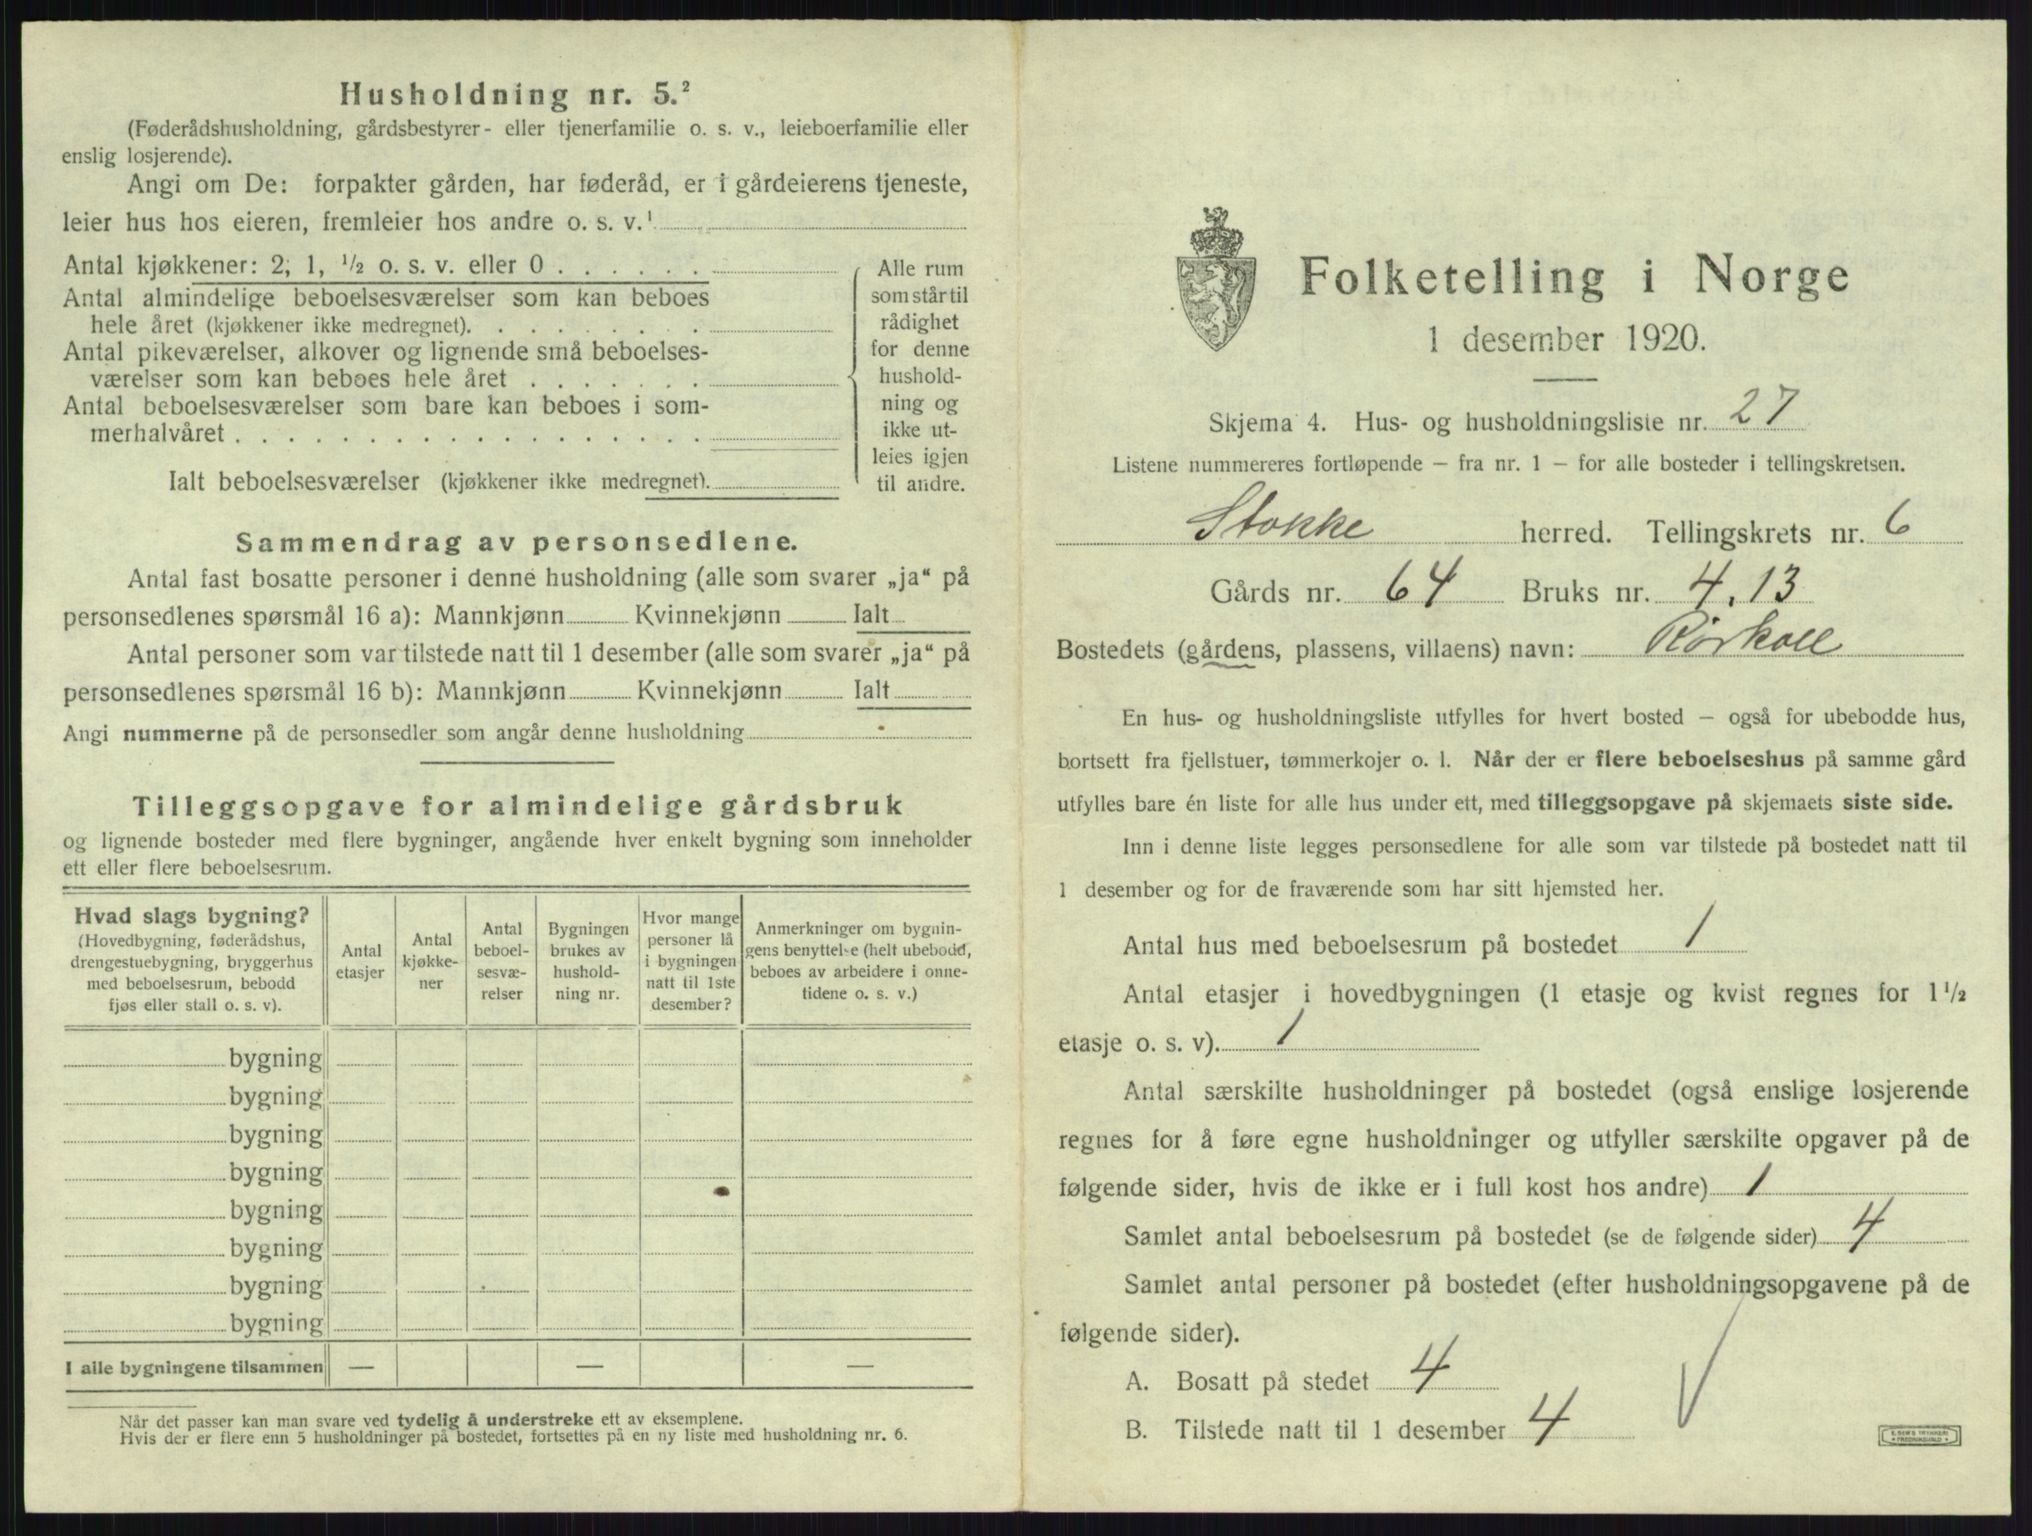 Husholdning nr. 5.²
(Føderådshusholdning, gårdsbestyrer- eller tjenerfamilie o. s. v., leieboerfamilie eller
enslig losjerende).
Angi om De: forpakter gården, har føderåd, er i gårdeierens tjeneste,
leier hus hos eieren, fremleier hos andre o. s. v.¹
Antal kjøkkener: 2, 1, ½ o. s. v. eller 0 . . . . . .
Antal almindelige beboelsesværelser som kan beboes
hele året (kjøkkener ikke medregnet). . . . . . . . .
Antal pikeværelser, alkover og lignende små beboelses-
værelser som kan beboes hele året . . . . . . .
Antal beboelsesværelser som bare kan beboes i som-
merhalvåret . . . . . . . . . . . . . . . . . .
Ialt beboelsesværelser (kjøkkener ikke medregnet).
Alle rum
som står til
rådighet
for denne
hushold-
ning og
ikke ut-
leies igjen
til andre.
Sammendrag av personsedlene.
Antal fast bosatte personer i denne husholdning (alle som svarer „ja“ på
personsedlenes spørsmål 16 a): Mannkjønn Kvinnekjønn Ialt
Antal personer som var tilstede natt til 1 desember (alle som svarer „ja“ på
personsedlenes spørsmål 16 b): Mannkjønn Kvinnekjønn Ialt
Angi nummerne på de personsedler som angår denne husholdning
Tilleggsopgave for almindelige gårdsbruk
og lignende bosteder med flere bygninger, angående hver enkelt bygning som inneholder
ett eller flere beboelsesrum.
Hvad slags bygning?
(Hovedbygning, føderådshus,
drengestuebygning, bryggerhus
med beboelsesrum, bebodd
fjøs eller stall o. s. v).
Antal
etasjer
Antal
kjøkke-
ner
Antal
beboel-
sesvæ-
relser
Bygningen
brukes av
hushold-
ning nr.
Hvor mange
personer lå
i bygningen
natt til 1ste
desember?
Anmerkninger om bygnin-
gens benyttelse (helt ubebodd,
beboes av arbeidere i onne-
tidene o. s. v.)
bygning
bygning
bygning
bygning
bygning
bygning
bygning
bygning
I alle bygningene tilsammen — — —
Når det passer kan man svare ved tydelig å understreke ett av eksemplene.
Hvis der er flere enn 5 husholdninger på bostedet, fortsettes på en ny liste med husholdning nr. 6.
Folketelling i Norge
1 desember 1920.
Skjema 4. Hus- og husholdningsliste nr. 27
Listene nummereres fortløpende – fra nr. 1 – for alle bosteder i tellingskretsen.
Stokke herred. Tellingskrets nr. 6
Gårds nr. 64 Bruks nr. 4,13
Bostedets (gårdens, plassens, villaens) navn: Rørkoll
En hus- og husholdningsliste utfylles for hvert bosted – også for ubebodde hus,
bortsett fra fjellstuer, tømmerkojer o. l. Når der er flere beboelseshus på samme gård
utfylles bare én liste for alle hus under ett, med tilleggsopgave på skjemaets siste side.
Inn i denne liste legges personsedlene for alle som var tilstede på bostedet natt til
1 desember og for de fraværende som har sitt hjemsted her.
Antal hus med beboelsesrum på bostedet 1
Antal etasjer i hovedbygningen (1 etasje og kvist regnes for 1½
etasje o. s. v). 1
Antal særskilte husholdninger på bostedet (også enslige losjerende
regnes for å føre egne husholdninger og utfyller særskilte opgaver på de
følgende sider, hvis de ikke er i full kost hos andre) 1
Samlet antal beboelsesrum på bostedet (se de følgende sider) 4
Samlet antal personer på bostedet (efter husholdningsopgavene på de
følgende sider).
A. Bosatt på stedet 4
B. Tilstede natt til 1 desember 4